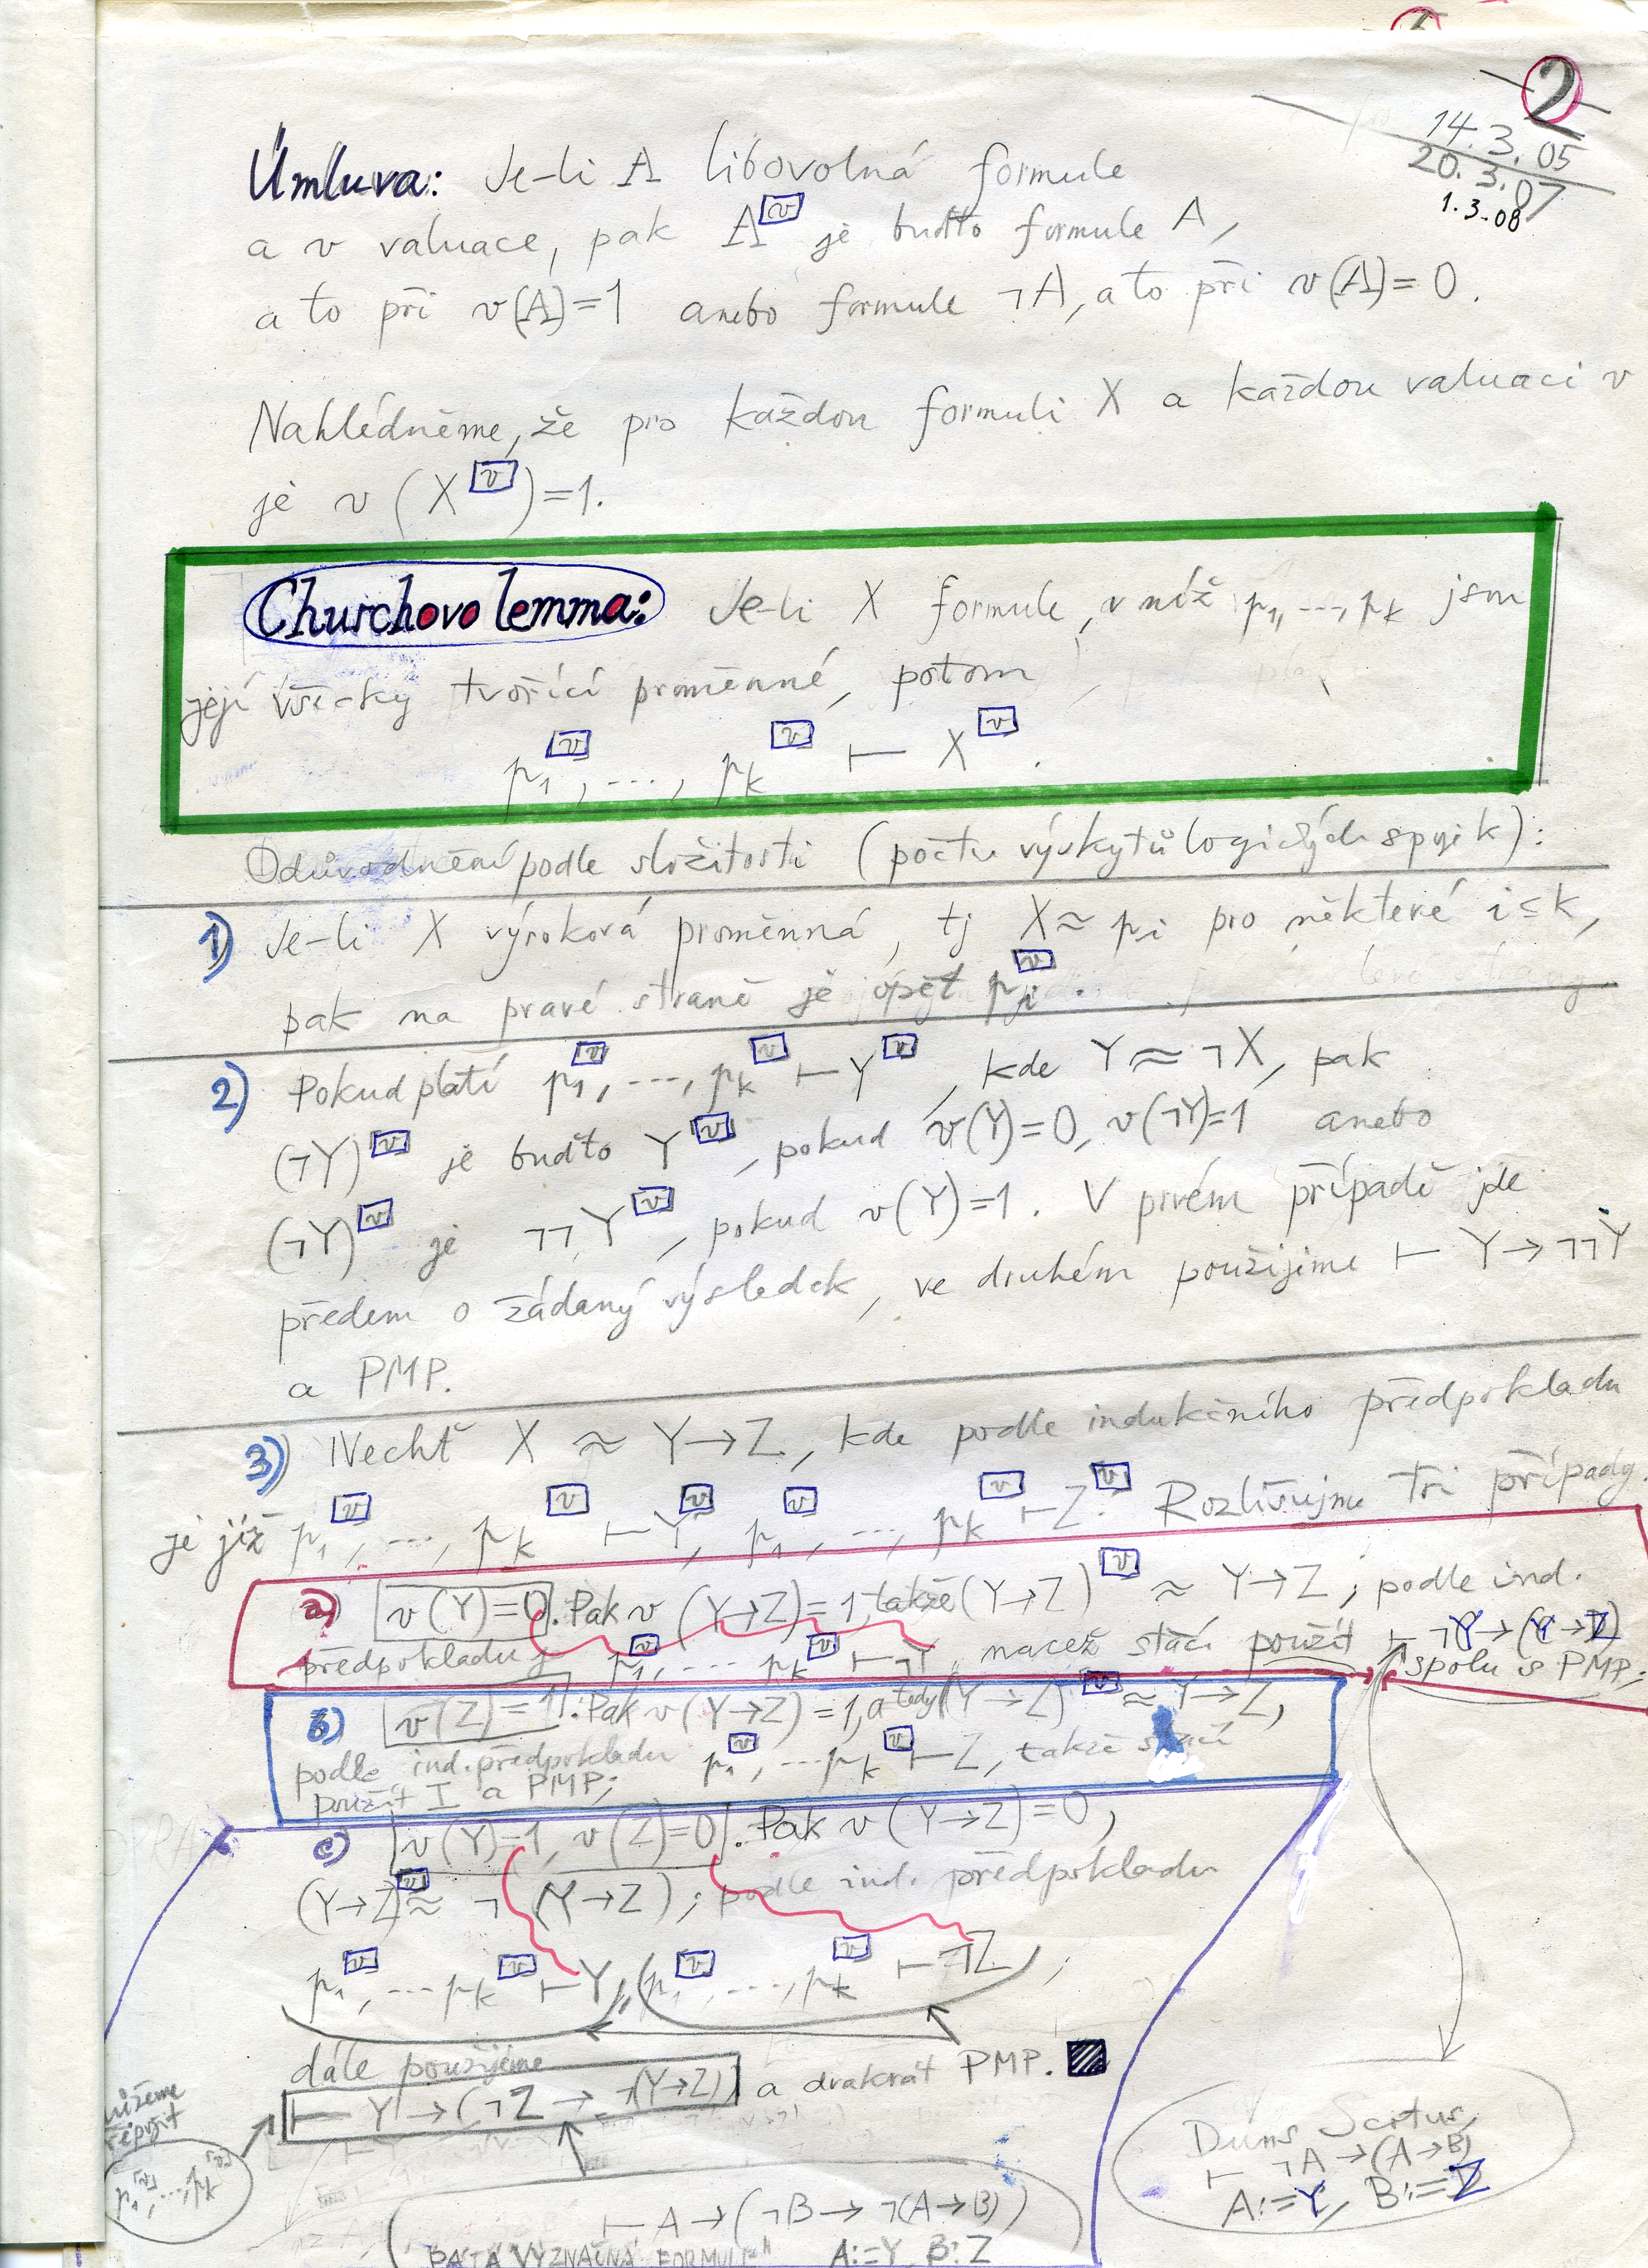 2
14.3.05
20.3.07
1.3.08
Úmluva: Je-li A libovolná formule
a v valuace, pak A^[v] je buďto formule A,
a to při v(A)=1 anebo formule ¬A, a to při v(A)=0.
Nahlédněme, že pro každou formuli X a každou valuaci v
je v(X^[v])=1.
Churchovo lemma: Je-li X formule, v níž p₁,...,pₖ jsou
její všecky tvořící proměnné, potom
p₁^[v], ..., pₖ^[v] ⊢ X^[v].
Odůvodnění podle složitosti (počtu výskytů logických spojek):
1) Je-li X výroková proměnná, tj X ≈ pᵢ pro některé i≤k,
pak na pravé straně je opět pᵢ^[v].
2) Pokud platí p₁^[v], ..., pₖ^[v] ⊢ Y^[v], kde Y ≈ ¬X, pak
(¬Y)^[v] je buďto Y^[v], pokud v(Y)=0, v(¬Y)=1 anebo
(¬Y)^[v] je ¬¬Y^[v], pokud v(Y)=1. V prvém případě jde
předem o žádaný výsledek, ve druhém použijeme ⊢ Y→¬¬Y
a PMP.
3) Nechť X ≈ Y→Z, kde podle indukčního předpokladu
je již p₁^[v], ..., pₖ^[v] ⊢ Y^[v], p₁^[v], ..., pₖ^[v] ⊢ Z^[v]. Rozlišujme tři případy.
a) v(Y)=0. Pak v(Y→Z)=1, takže (Y→Z)^[v] ≈ Y→Z; podle ind.
předpokladu p₁^[v], ... pₖ^[v] ⊢ ¬Y, načež stačí použít ⊢ ¬Y→(Y→Z)
spolu s PMP;
b) v(Z)=1. Pak v(Y→Z)=1, a tedy (Y→Z)^[v] ≈ Y→Z,
podle ind. předpokladu p₁^[v], ... pₖ^[v] ⊢ Z, takže stačí
použít I a PMP;
c) v(Y)=1, v(Z)=0. Pak v(Y→Z)=0,
(Y→Z)^[v] ≈ ¬(Y→Z); podle ind. předpokladu
p₁^[v], ... pₖ^[v] ⊢ Y, p₁^[v], ..., pₖ^[v] ⊢ ¬Z;
dále použijeme
⊢ Y→(¬Z→¬(Y→Z)) a dvakrát PMP.
p₁^[v], ..., pₖ^[v]
Duns Scotus
⊢ ¬A→(A→B)
A:=Y, B:=Z
⊢ A→(¬B→¬(A→B))
PÁTÁ VÝZNAČNÁ FORMULE
A:=Y B:Z